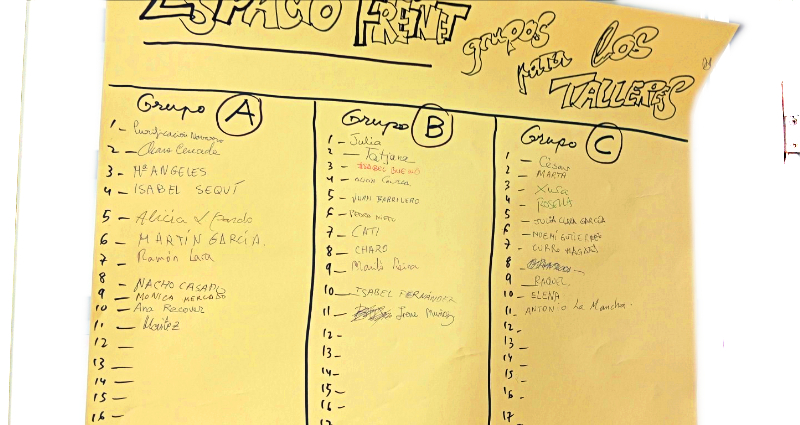 ESPACIO FREINET
grupos
para LOS
TALLERES
Grupo A
1 - Purificación Navarro
2 - Cerrada
3 - Mª ANGELES
4 - ISABEL SEQUÍ
5 - Alicia Pardo
6 - MARTÍN GARCÍA.
7 - Ramón Lara
8 - NACHO CASADO
9 - MONICA MERCADO
10 - Ana Recover
11 -
12 -
13 -
14 -
15 -
16 -
Grupo B
1 - Julia
2 - Tatjana
3 - ISABEL BUENO
4 -
5 - JUAN FABRILERO
6 - PEDRO
7 - CATI
8 - CHARO
9 - Marta
10 - ISABEL FERNÁNDEZ
11 - Irene Muñoz
12 -
13 -
14 -
15 -
16 -
17
Grupo C
1 - César
2 - MARTA
3 - Xusa
4 - ROSELLA
5 - JULIA CLARA GARCÍA
6 - NOEMÍ GUTIERREZ
7 - CURRO
8 -
9 - RAQUEL
10 - ELENA
11 - ANTONIO La Mancha.
12 -
13 -
14 -
15 -
16 -
17